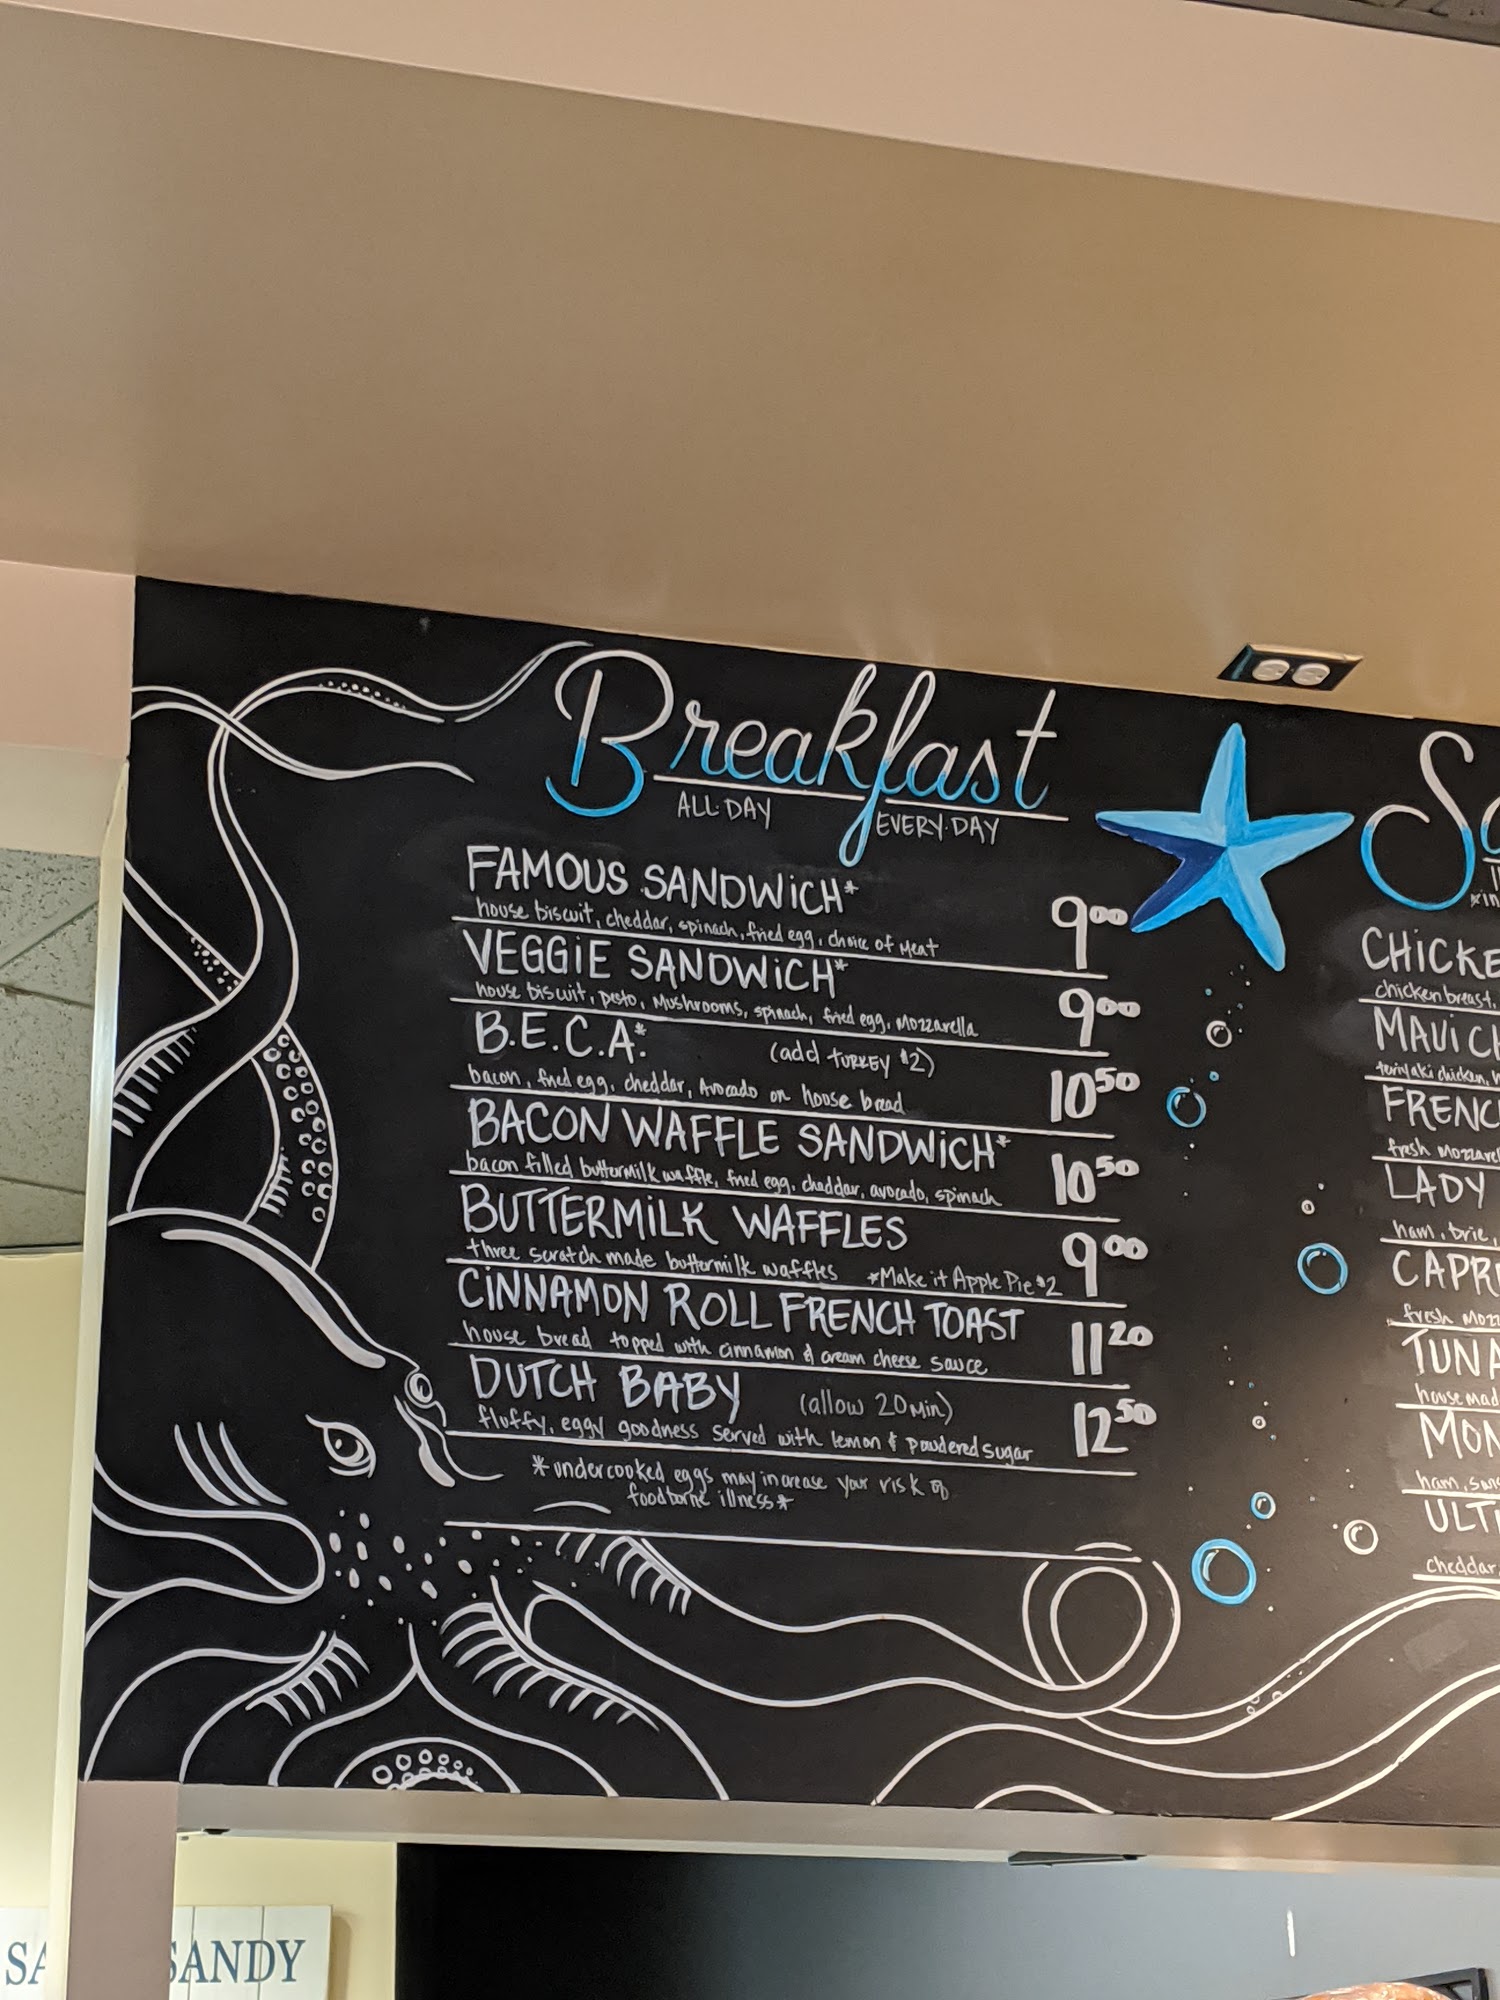 Breakfast
ALL·DAY EVERY·DAY
FAMOUS SANDWiCH* 9⁰⁰
house biscuit, cheddar, spinach, fried egg, choice of meat
VEGGiE SANDWiCH* 9⁰⁰
house biscuit, pesto, Mushrooms, spinach, fried egg, Mozzarella
B.E.C.A.* (add TURKEY $2) 10⁵⁰
bacon, fried egg, cheddar, Avocado on house bread
BACON WAFFLE SANDWiCH* 10⁵⁰
bacon filled buttermilk waffle, fried egg, cheddar, avocado, spinach
BUTTERMiLK WAFFLES 9⁰⁰
three scratch made buttermilk waffles *Make it Apple Pie $2
CiNNAMON ROLL FRENCH TOAST 11²⁰
house bread topped with cinnamon & cream cheese sauce
DUTCH BABY (allow 20 Min) 12⁵⁰
fluffy, eggy goodness served with lemon & powdered sugar
*undercooked eggs may increase your risk of
foodborne illness*
CHiCKE
chicken breast,
MAUi CH
teriyaki chicken,
FRENC
fresh Mozzarel
LADY
ham, brie,
CAPR
fresh Mozz
TUNA
house mad
MON
ham, swis
ULT
cheddar,
SA SANDY